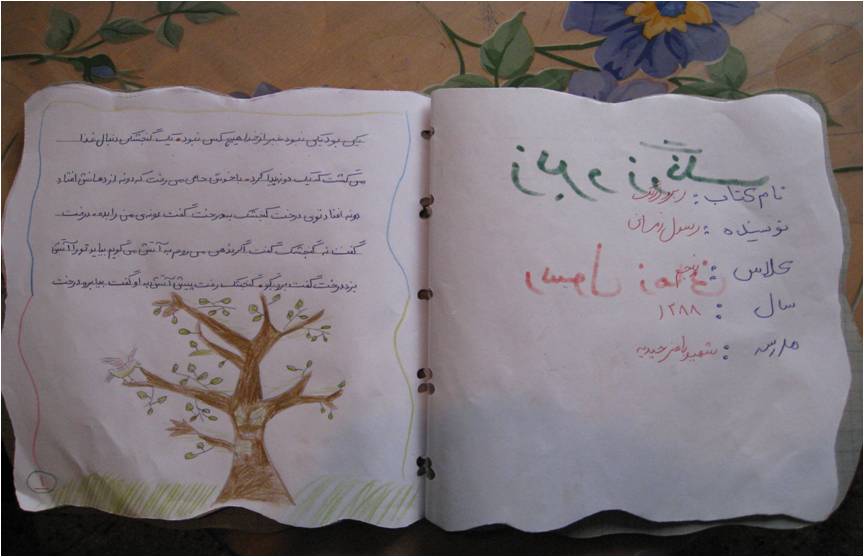 نام کتاب : زبر و زرنگ
نویسنده : رسول زمانی
کلاس : پنجم
سال : ۱۳۸۸
مدرسه : شهید
یکی بود یکی نبود غیر از خدا هیچ کس نبود. یک گنجشکی دنبال غذا
می گشت که یک دونه پیدا کرد. با خوش حالی می رفت که دونه از دهانش افتاد
دونه افتاد توی درخت گنجشک به درخت گفت دونه ی من را بده. درخت
گفت نه گنجشک گفت اگر ندهی می روم به آتش می گویم بیاید تو را آتش
بزد درخت گفت برو بگو. گنجشک رفت پیش آتش به او گفت بیا برو درخت
۱